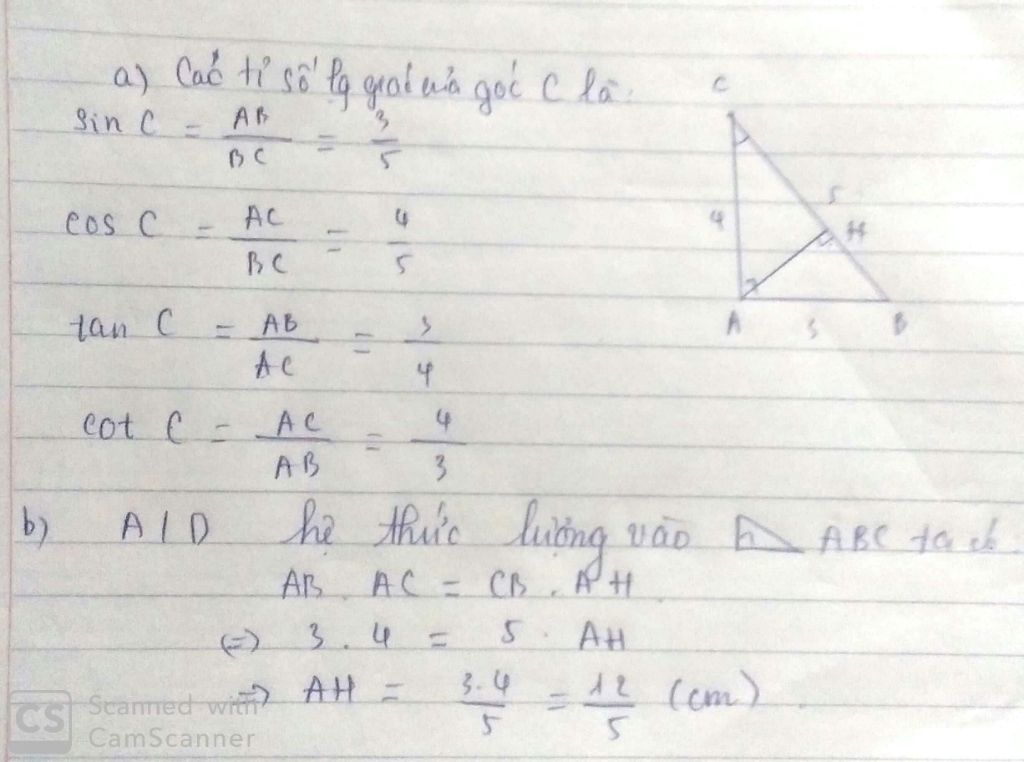 a) Các tỉ số lg giác của góc C là:
sin C = AB/BC = 3/5
cos C = AC/BC = 4/5
tan C = AB/AC = 3/4
cot C = AC/AB = 4/3
C
4
5
H
A 3 B
b) A/D hệ thức lượng vào ABC ta có
AB. AC = CB. AH
(=) 3. 4 = 5. AH
=) AH = 3.4/5 = 12/5 (cm)
CS Scanned with
CamScanner